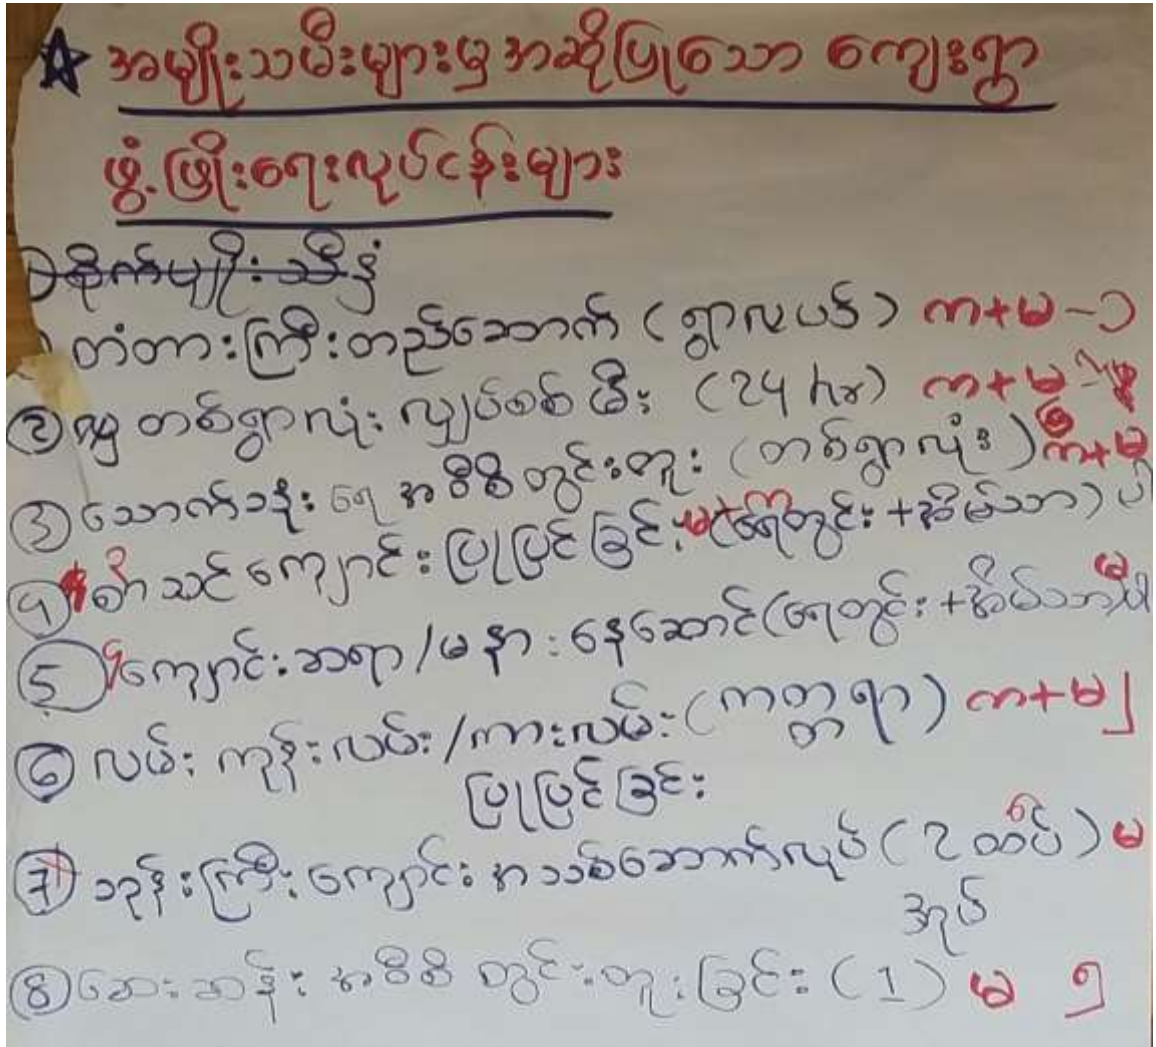 ☆ အမျိုးသမီးများမှ အဆိုပြုသော ကျေးရွာ
ဖွံ့ဖြိုးရေးလုပ်ငန်းများ
စိုက်ပျိုး
တံတားကြီးတည်ဆောက် (ရွာလယ်) ကာ+မ - ၁
② တစ်ရွာလုံး လျှပ်စစ်မီး (24 hr) ကာ+မ
③ သောက်သုံး ရေ အဝီစိတွင်းတူး (တစ်ရွာလုံး) ကာ+မ
၄ စာသင်ကျောင်း ပြုပြင်ခြင်း (ရေတွင်း + အိမ်သာ) ပါ
⑤ ကျောင်းဆရာ/မ နားနေဆောင် (ရေတွင်း + အိမ်သာ) ပါ မ
⑥ လမ်း ကုန်းလမ်း/ကားလမ်း (ကတ္တရာ) ကာ+မ
ပြုပြင်ခြင်း
⑦ ဘုန်းကြီးကျောင်း အသစ်ဆောက်လုပ် (2 ထပ်) မ
အုပ်
⑧ ဆေးခန်း အဝီစိ တွင်းတူးခြင်း (1) မ ၅